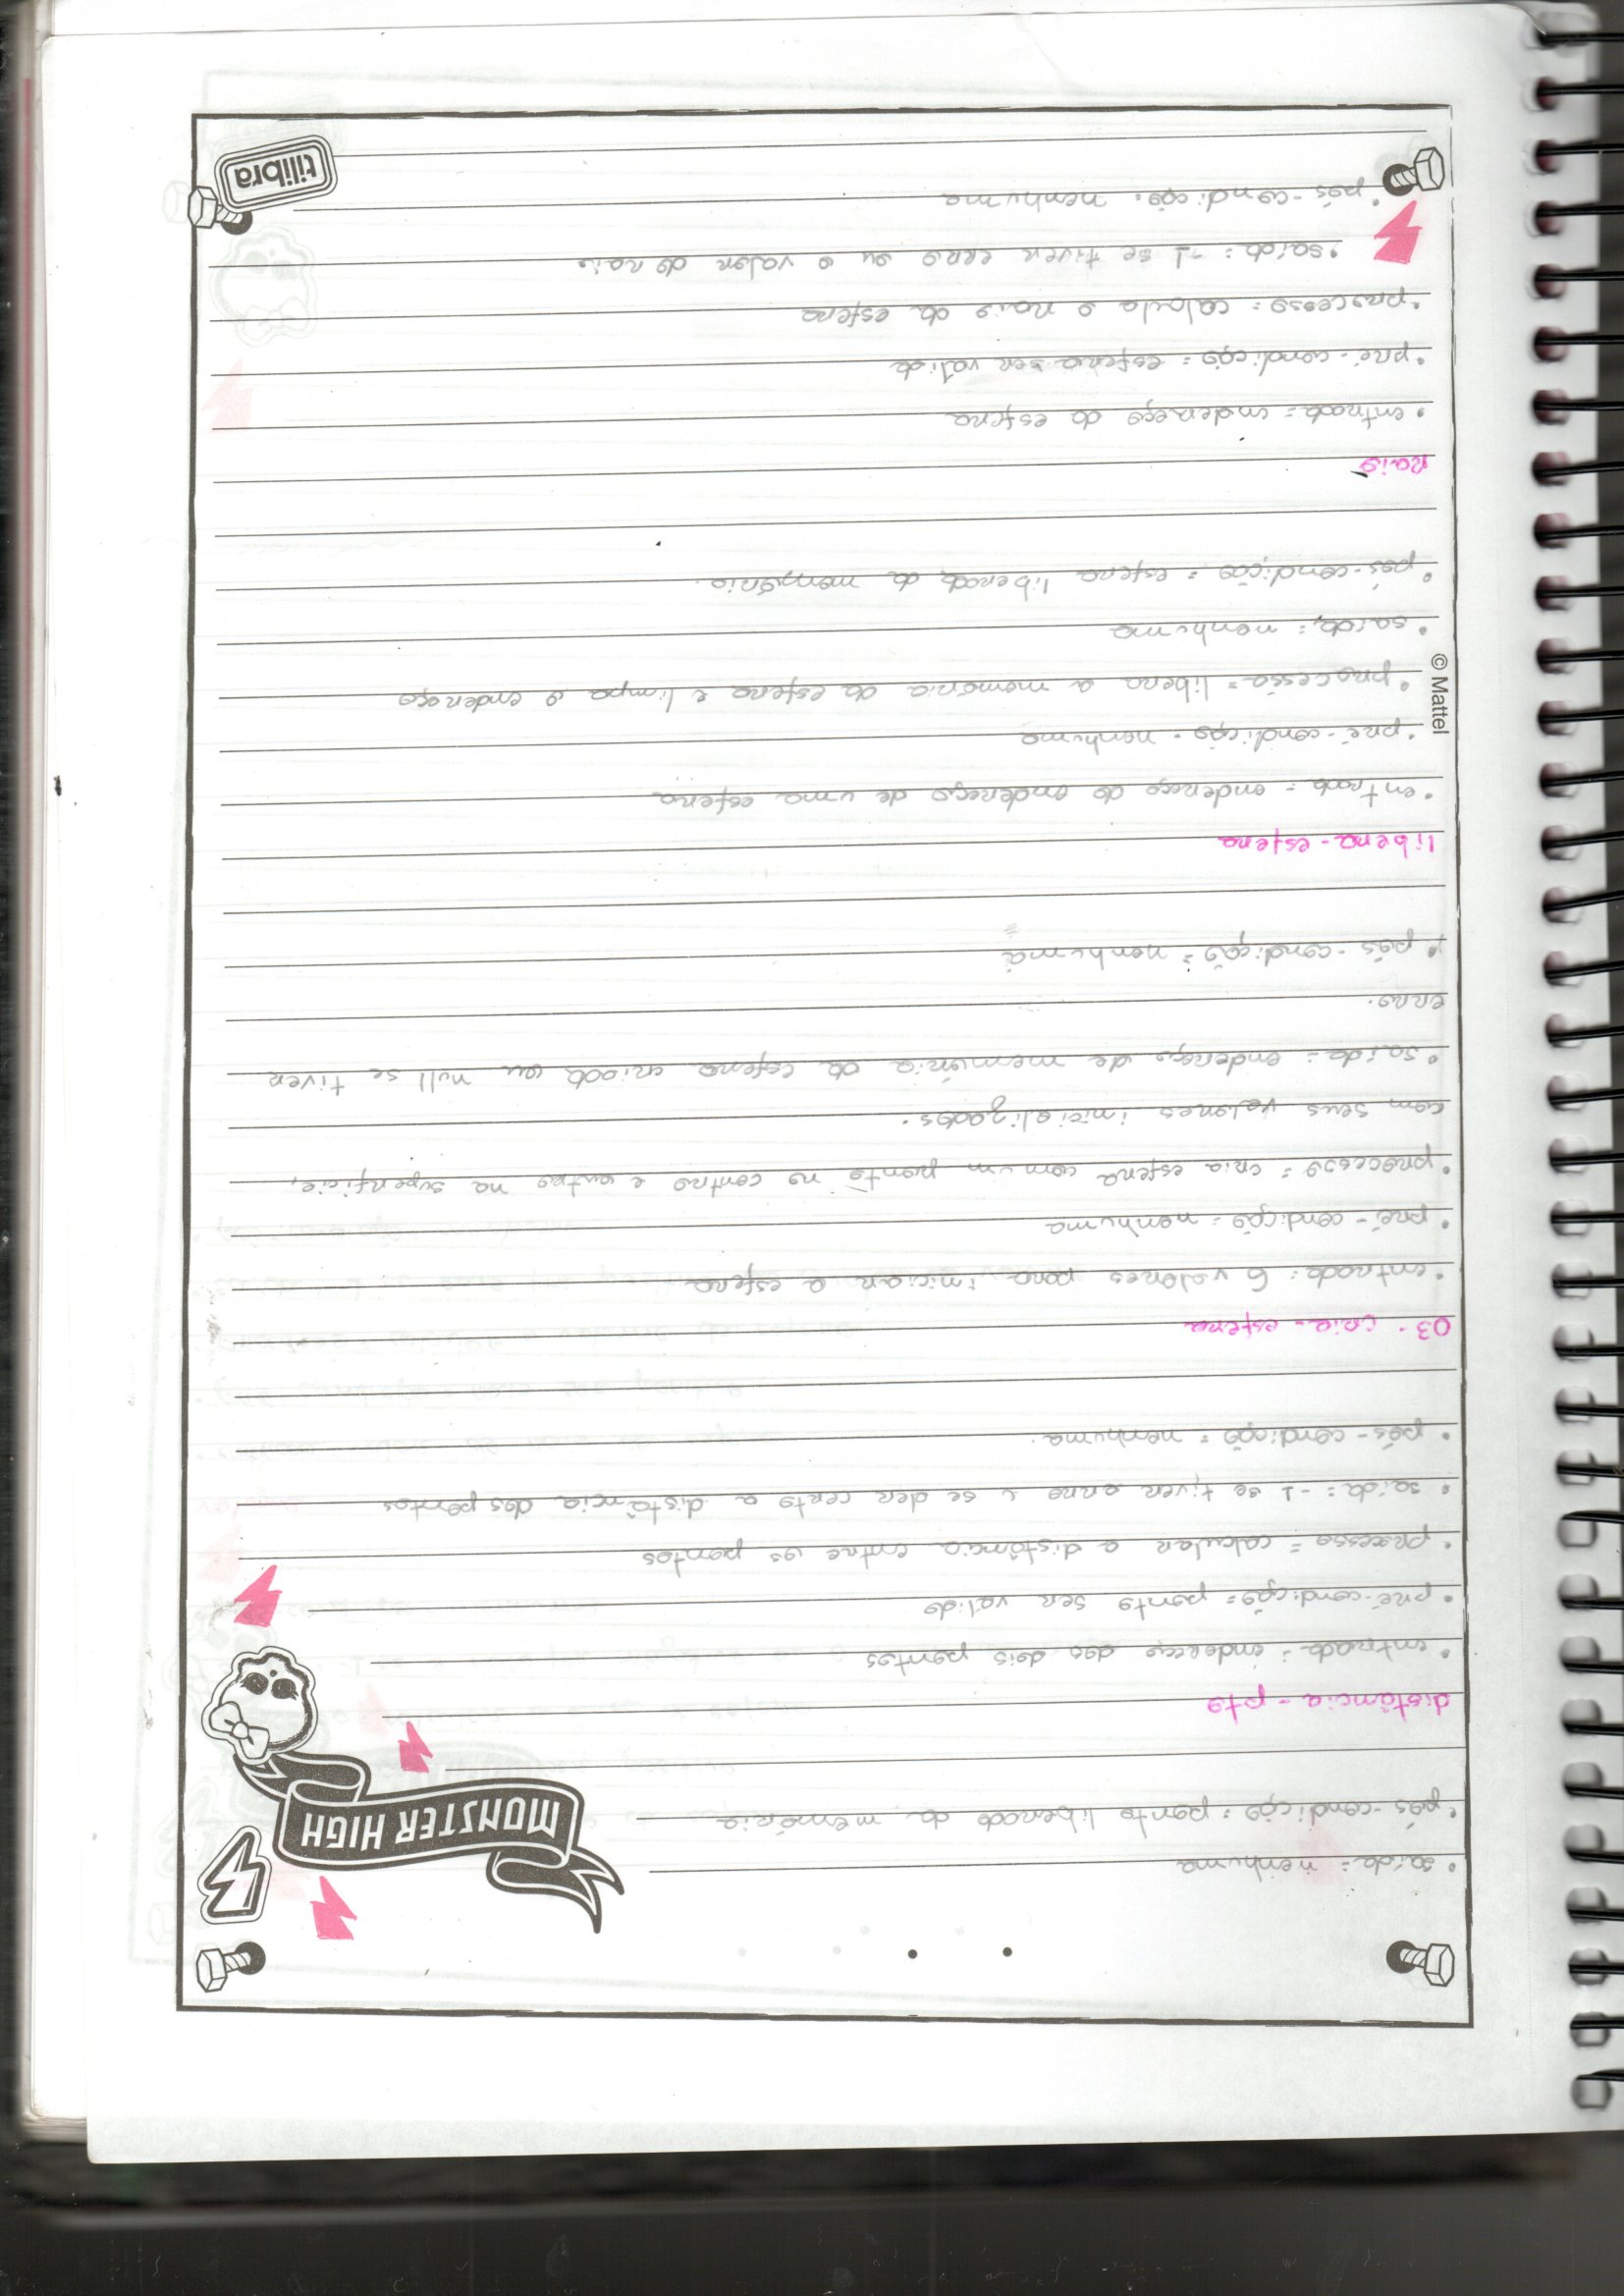 MONSTER HIGH
• saída = nenhuma
• pós-condição = ponto liberado da memória
distância-pto
• entrada = endereço dos dois pontos
• pré-condição = ponto ser valido
• processo = calcular a distância entre os pontos
• saida = -1 se tiver erro e se der certo a distância dos pontos
• pós-condição = nenhuma.
03. cria-esfera
• entrada = 6 valores para iniciar a esfera
• pré-condição = nenhuma
• processo = cria esfera com um ponto no centro e outro na superfície,
com seus valores inicializados.
• saída = endereço de memória da esfera criada ou null se tiver
erro.
• pós-condição = nenhuma
libera-esfera
• entrada = endereço do endereço de uma esfera
• pré-condição = nenhuma
• processo = libera a memória da esfera e limpa o endereço
• saída = nenhuma
• pós-condição = esfera liberada da memória.
© Mattel
raio
• entrada = endereço da esfera
• pré-condição = esfera ser valida
• processo = calcula o raio da esfera
• saída = -1 se tiver erro ou o valor do raio
• pós-condição = nenhuma
tilibra